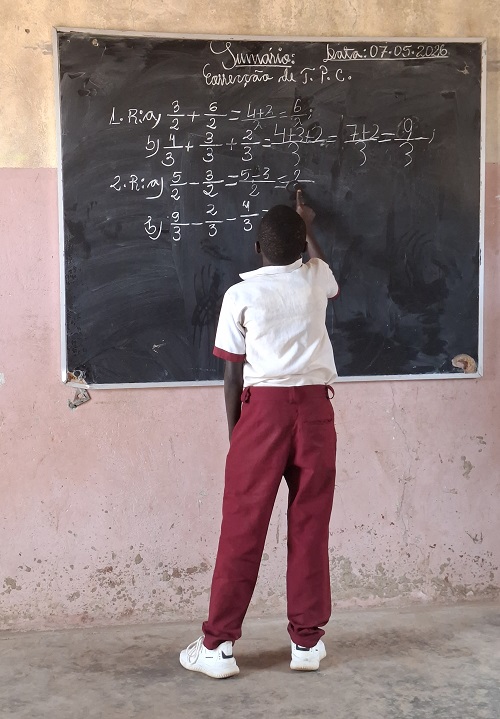 Sumário: Data: 07.05.2026
Correcção de T.P.C.
1. R: a) 3/2 + 6/2 = 4+2/2 = 6/2;
b) 4/3 + 3/3 + 2/3 = 4+3+2/3 = 7+2/3 = 9/3;
2. R: a) 5/2 - 3/2 = 5-3/2 = 2/
b) 9/3 - 2/3 - 4/3